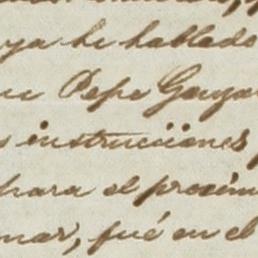 ya he hablado
ue Pepe Gonza
instrucciones
para el próxim
mar, fué en el